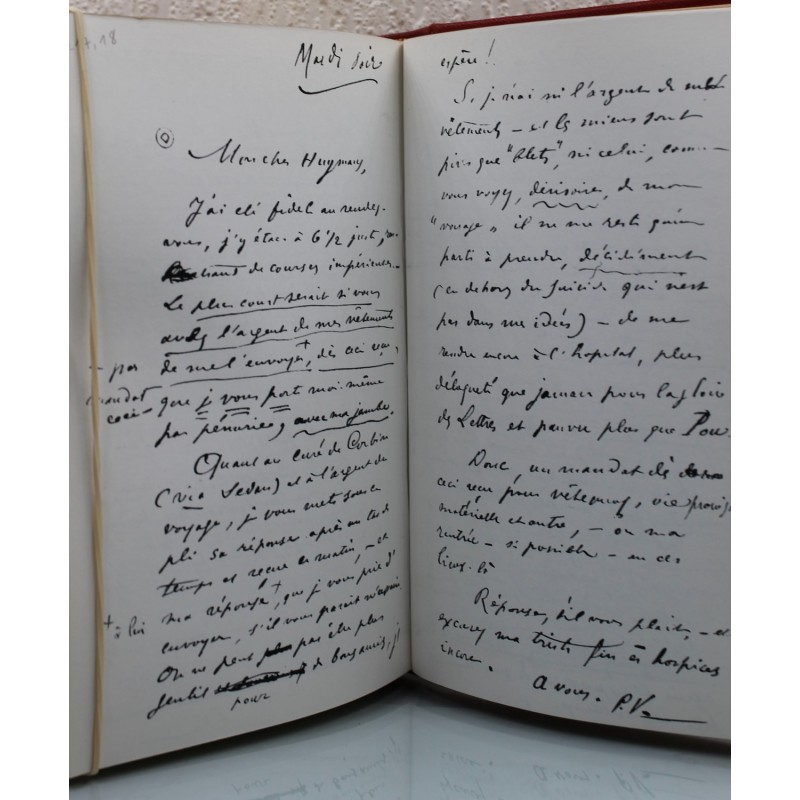 Mardi soir
Mon cher Huysmans,
J'ai été fidèle au rendez-
vous, j'y étais à 6 1/2 just,
de courses impérieuses.
Le plus court serait si vous
avez l'argent de mes vêtements
de me l'envoyer +, dès ceci
– par
mandat
ceci –
que je vous porte moi-même
par pénurie, avec ma jambe.
Quant au curé de Corbion
(via Sedan) et à l'argent du
voyage, je vous mets sous ce
pli sa réponse après un tas de
temps et reçue ce matin, – et
ma réponse +, que je vous prie d'
+ à lui
envoyer, s'il vous paraît
On ne peut pas être plus
gentil de
pour
espère !
Si je n'ai ni l'argent de
vêtements – et les miens sont
pires que "blets", ni celui, comme
vous voyez, dérisoire, de mon
"voyage" il ne me reste qu'un
parti à prendre, décidément
(en dehors du suicide qui n'est
pas dans mes idées) – de me
rendre encore à l'hopital, plus
que jamais pour la gloire
des Lettres et pauvre plus que
Donc, un mandat dès
ceci reçu pour vêtements, vie
matérielle et autre, – ou ma
rentrée – si possible – en ces
lieux-là
Réponse, s'il vous plait, – et
excusez ma triste fin ès hospices
encore.
A vous. P.V